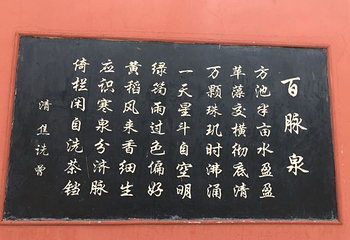 百脉泉
方池半亩水盈盈
草藻交横彻底清
万颗珠玑时沸涌
一天星斗自空明
绿筠雨过色偏好
黄稻风来香细生
应识寒泉分济脉
倚栏闲自洗茶铛
清焦诜曾